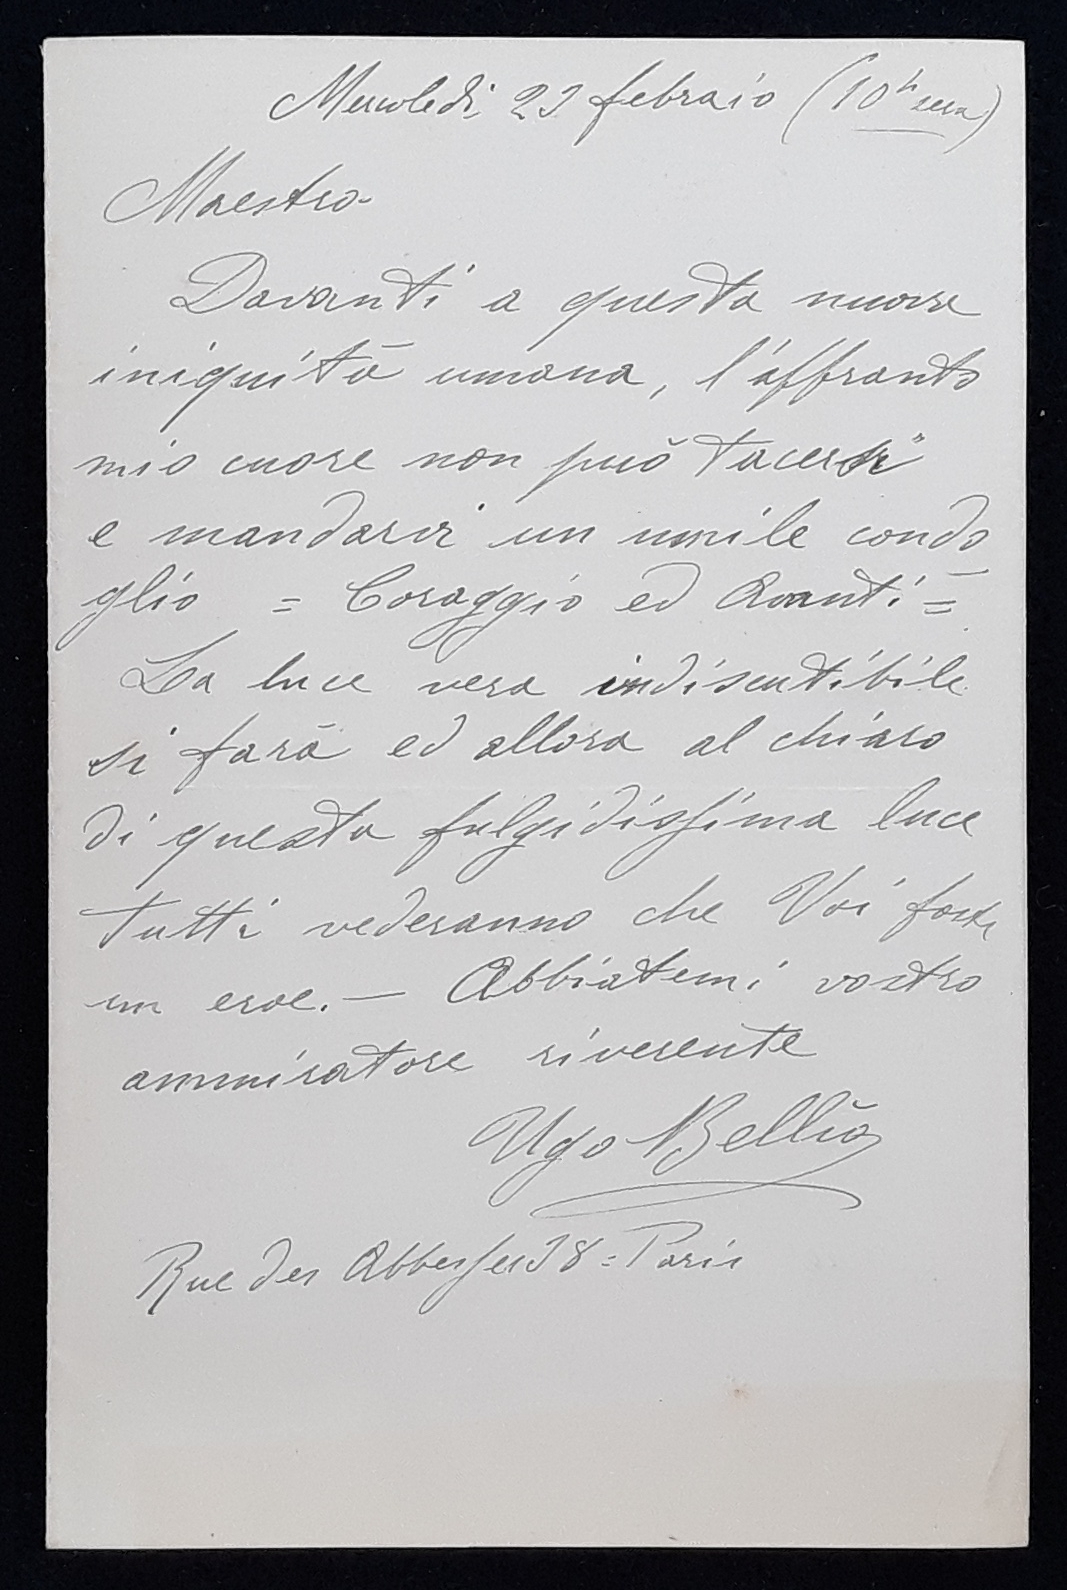 Mercoledì 23 febraio (10h sera)
Maestro-
Davanti a questa nuova
iniquità umana, l'affranto
mio cuore non può tacersi
e mandarvi un umile condo
glio = Coraggio ed Avanti =
La luce vera indiscutibile
si farà ed allora al chiaro
di questa fulgidissima luce
tutti vederanno che Voi foste
un eroe. — Abbiatemi vostro
ammiratore riverente
Ugo Bellio
Rue des Abbesses 38 = Paris